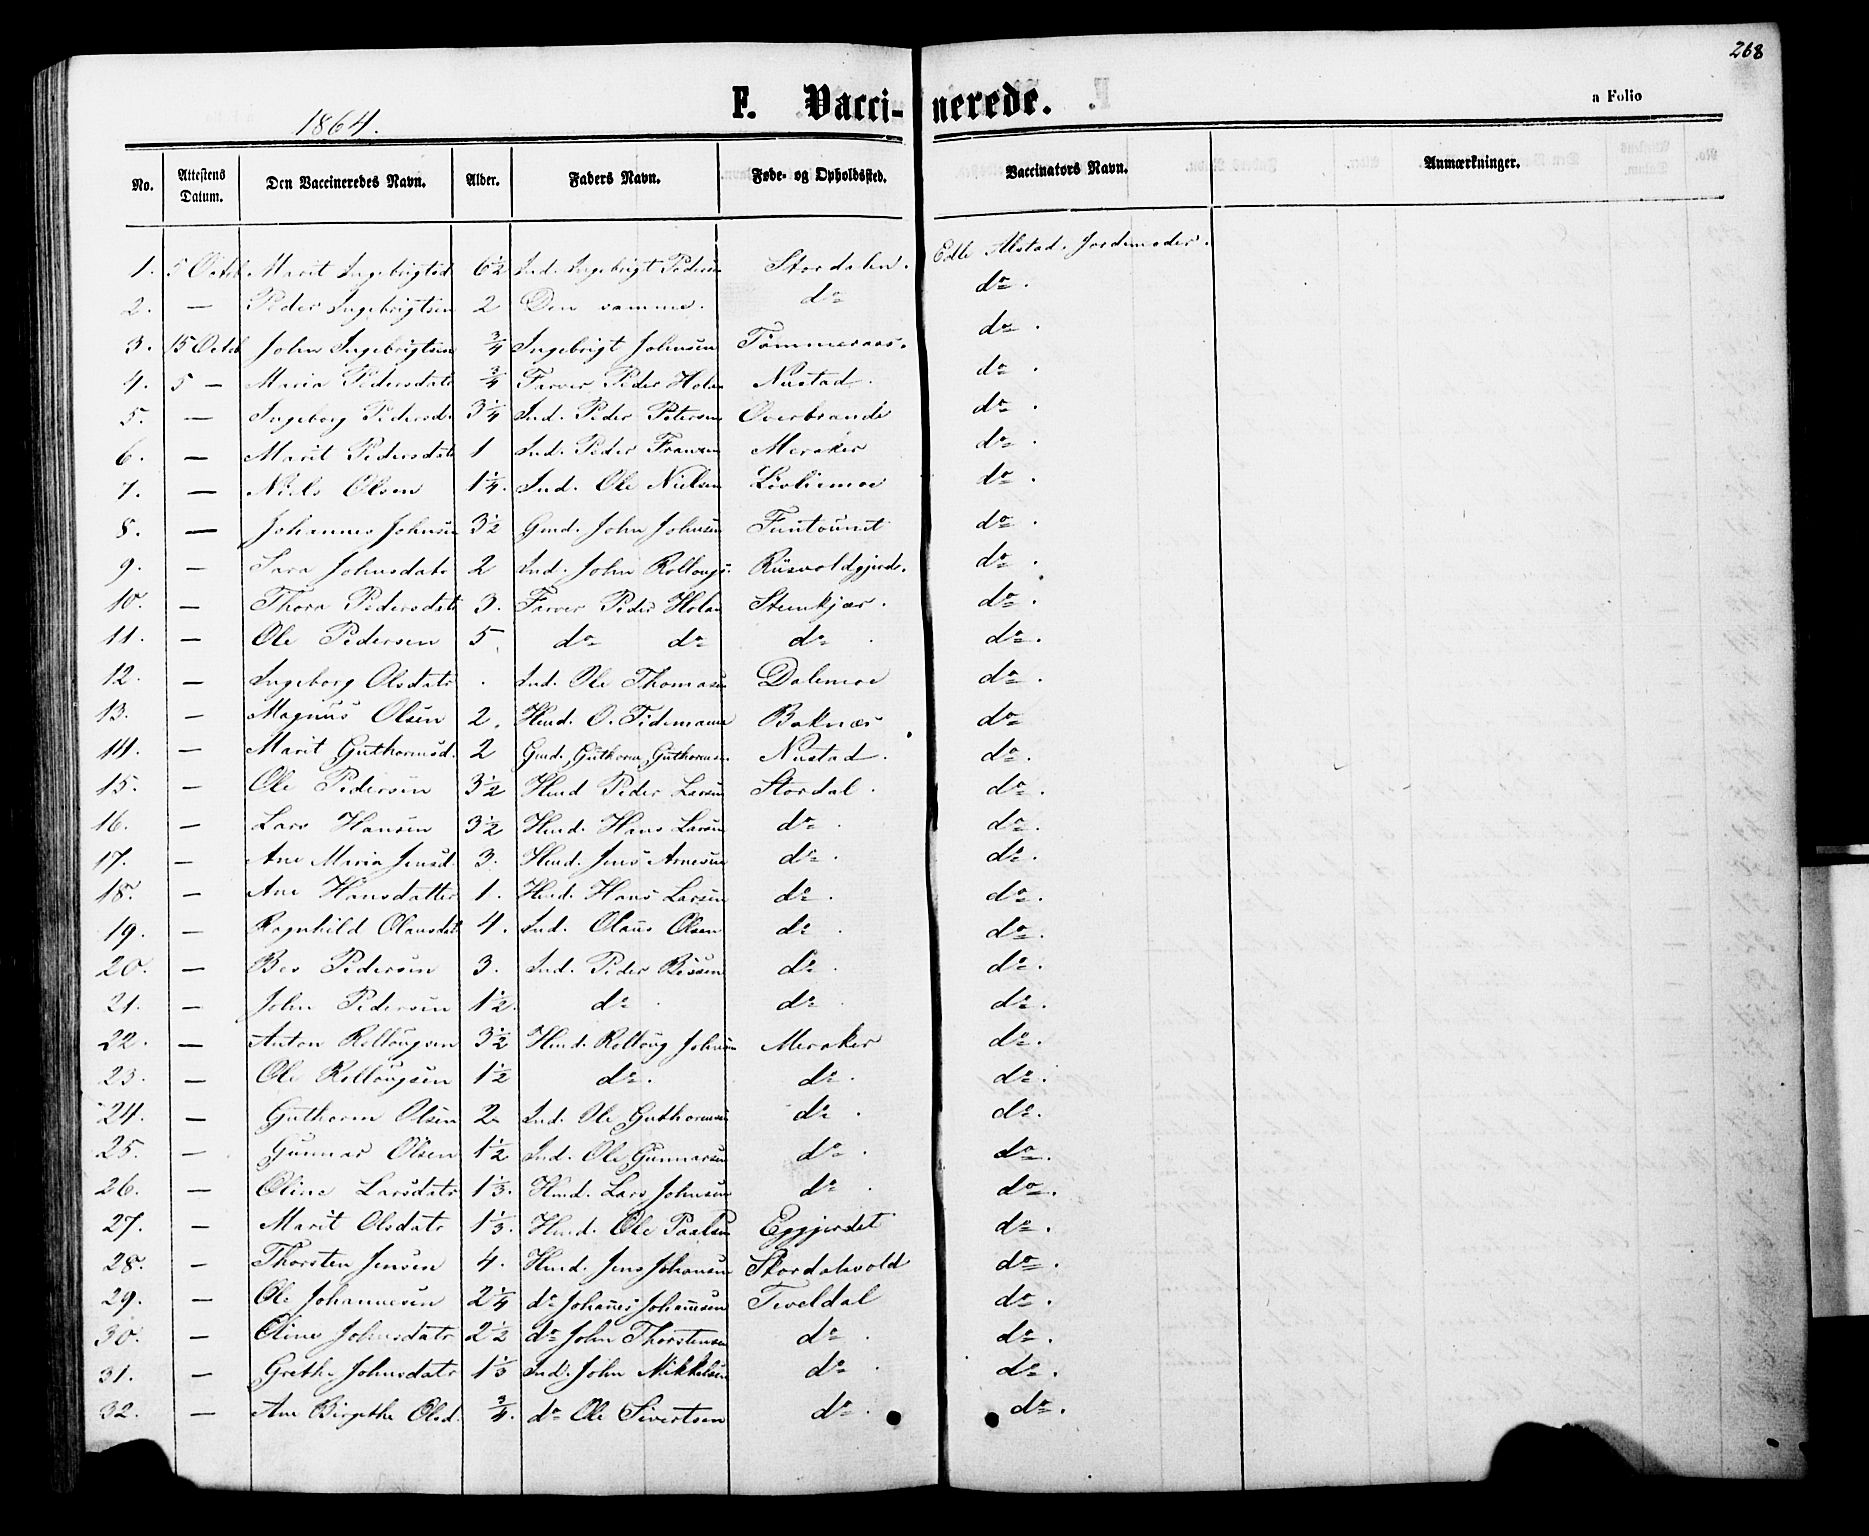 268
F. Vaccinerede.
a Folio
1864.
No. Attestens Datum. Den Vaccineredes Navn. Alder. Faders Navn. Føde- og Opholdssted. Vaccinators Navn. Anmærkninger.
1. 5 Octob Marit Ingebrigtsd 6½ Ind. Ingebrigt Pedersen Stordalen. Alstad. Jordemoder.
2. — Peder Ingebrigtsen 2 Den samme. do do.
3. 15 Octob John Ingebrigtsen ¾ Ingebrigt Johnsen Tømmeraas. do.
4. 5 — Maria Pedersdatr ¾ Farver Peder Holan Nustad. do.
5. — Ingeborg Pedersd. 3¼ Ind. Peder Petersen Overbrande do.
6. — Marit Pedersdatr 1 Ind. Peder Franzen Meraker do.
7. — Niels Olsen 1¼. Ind. Ole Nielsen Lövliemoe do.
8. — Johannes Johnsen 3½ Gmd. John Johnsen Funtaunet do.
9. — Sara Johnsdatr 2 Ind. John Rollougs. Rüsvoldgjerde. do.
10. — Thora Pedersdatr 3. Farver Peder Holan Stenkjær. do.
11. — Ole Pedersen 5. do do do. do.
12. — Ingeborg Olsdatr . Ind. Ole Thomasen Dalemoe do.
13. — Magnus Olsen 2. Hmd. O. Tidemann Baknæs do
14. — Marit Guthormsd. 2 Gmd. Guthorm Guthormsen Nustad. do.
15. — Ole Pedersen 3½ Hmd Peder Larsen Stordal. do.
16. — Lars Hansen 3½ Hmd. Hans Larsen do. do.
17. — Ane Maria Jensd. 3. Hmd. Jens Arnesen do. do.
18. — Ane Hansdatter 1. Hmd. Hans Larsen do. do.
19. — Ragnhild Olausdatr 4. Ind. Olaus Olsen do. do.
20. — Bes Pedersen 3. Ind. Peder Bessen do. do.
21. — John Pedersen 1½. do. do. do.
22. — Anton Rollougsen 3½ Hmd. Rolloug Johnsen Meraker do.
23. — Ole Rollougsen 1½ do. do. do.
24. — Guthorm Olsen 2 Ind. Ole Guthormsen do. do.
25. — Gunnar Olsen 1½ Ind. Ole Gunnarsen do. do.
26. — Oline Larsdatr 1⅓. Hmd. Lars Johnsen do. do.
27. — Marit Olsdatr 1⅓. Hmd. Ole Paalsen Eggjerdet do.
28. — Thorsten Jensen 4. Hmd. Jens Johansen Stordalsvold do.
29. — Ole Johannesen 2¼ do Johanes Johannesen Teveldal do.
30. — Oline Johnsdatr 2½ do John Thorstensen do. do.
31. — Grethe Johnsdatr 1⅓ Ind. John Mikkelsen do. do.
32. — Ane Birgithe Olsd. ¾. do Ole Sivertsen do. do.